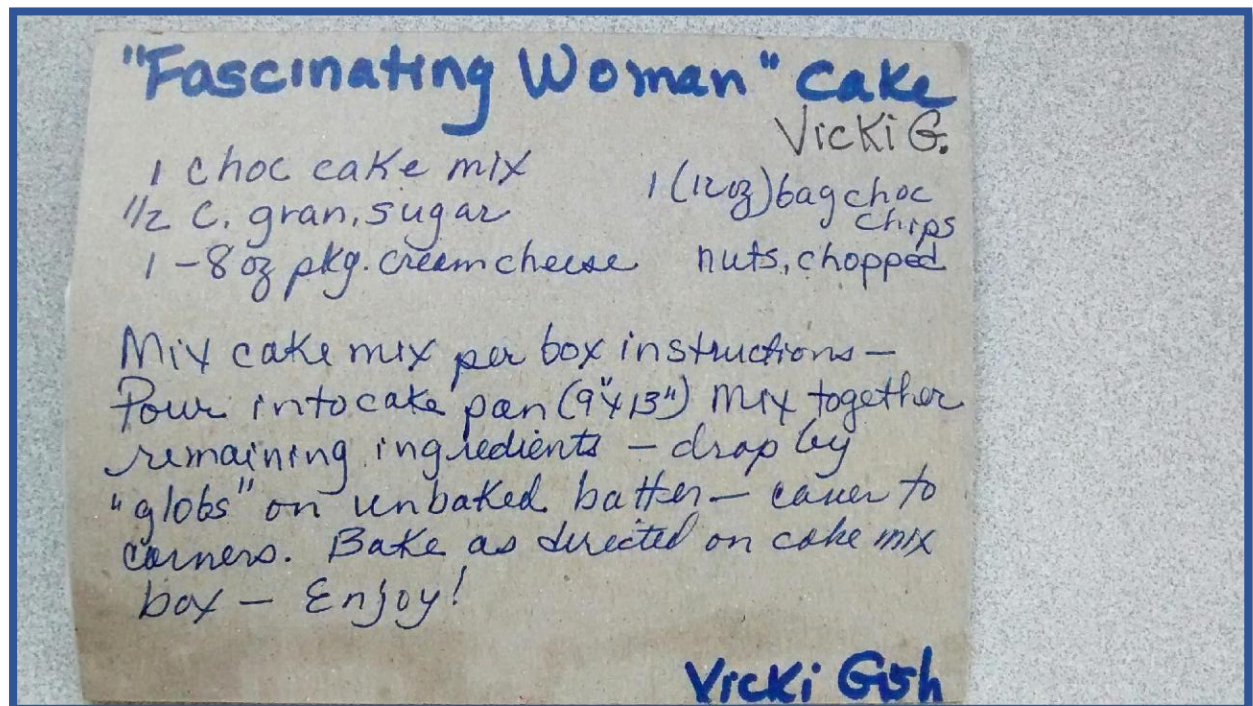 "Fascinating Woman" Cake
Vicki G.
1 choc cake mix
1/2 C. gran. sugar
1 - 8 oz pkg. cream cheese
1 (12 oz) bag choc
chips
nuts, chopped
Mix cake mix per box instructions -
Pour into cake pan (9"x13") Mix together
remaining ingredients - drop by
"globs" on unbaked batter - cover to
corners. Bake as directed on cake mix
box - Enjoy!
Vicki Gish